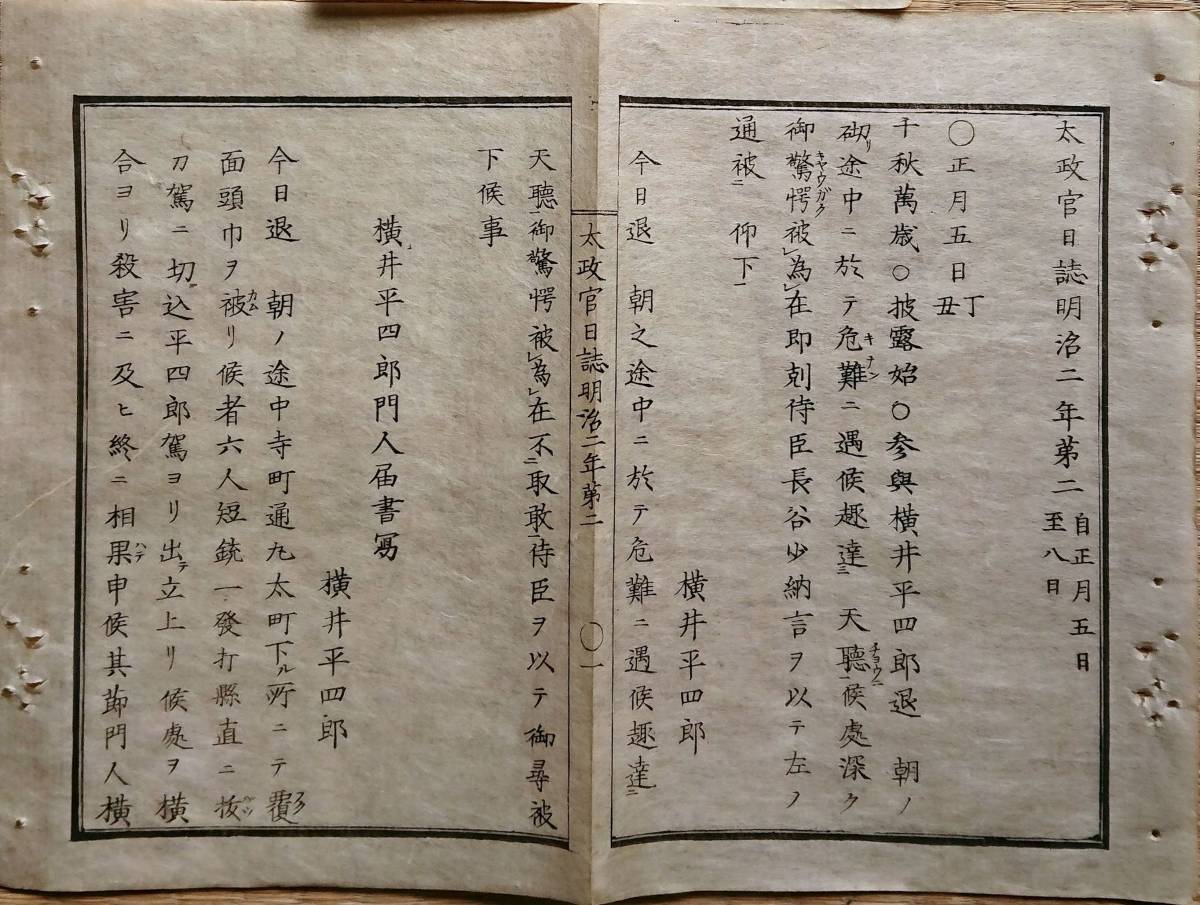 太政官日誌明治二年第二 自正月五日至八日
〇正月五日丁丑
千秋萬歳〇披露始〇参與横井平四郎退 朝ノ
砌リ途中ニ於テ危難ニ遇候趣達ニ 天聽一候處深ク
御驚愕被レ為レ在即刻侍臣長谷少納言ヲ以テ左ノ
通被ニ 仰下一
横井平四郎
今日退 朝之途中ニ於テ危難ニ遇候趣達ニ
太政官日誌明治二年第二 〇一
天聽一御驚愕被レ為レ在不ニ取敢一侍臣ヲ以テ御尋被
下候事
横井平四郎門人届書寫
横井平四郎
今日退 朝ノ途中寺町通丸太町下ル所ニテ覆
面頭巾ヲ被リ候者六人短銃一發打縣直ニ抜
刀駕ニ切込平四郎駕ヨリ出テ立上リ候處ヲ横
合ヨリ殺害ニ及ヒ終ニ相果申候其節門人横